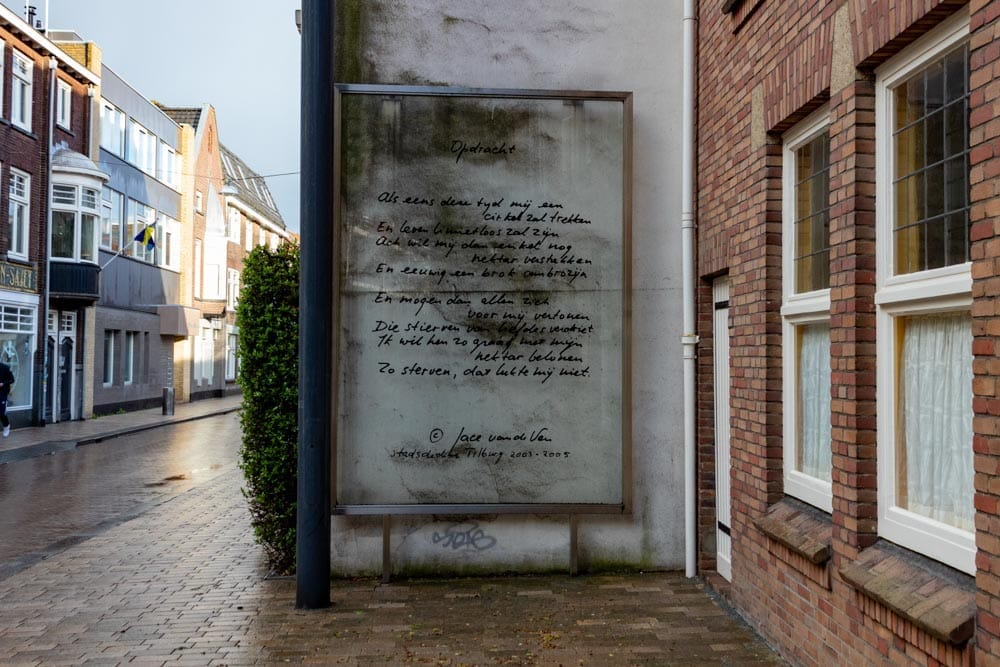 Opdracht
Als eens deze tyd mij een
cirkel zal trekken
En leven limietloos zal zijn
Ach wil mij dan enkel nog
nektar verstekken
En eeuwig een brok ambrozijn
En mogen dan allen zich
voor mij vertonen
Die stierven van liefdesverdriet
Ik wil hen zo graag met mijn
nektar belonen
Zo sterven, dat lukte mij niet.
© Jace van de Ven
stadsdichter Tilburg 2003-2005